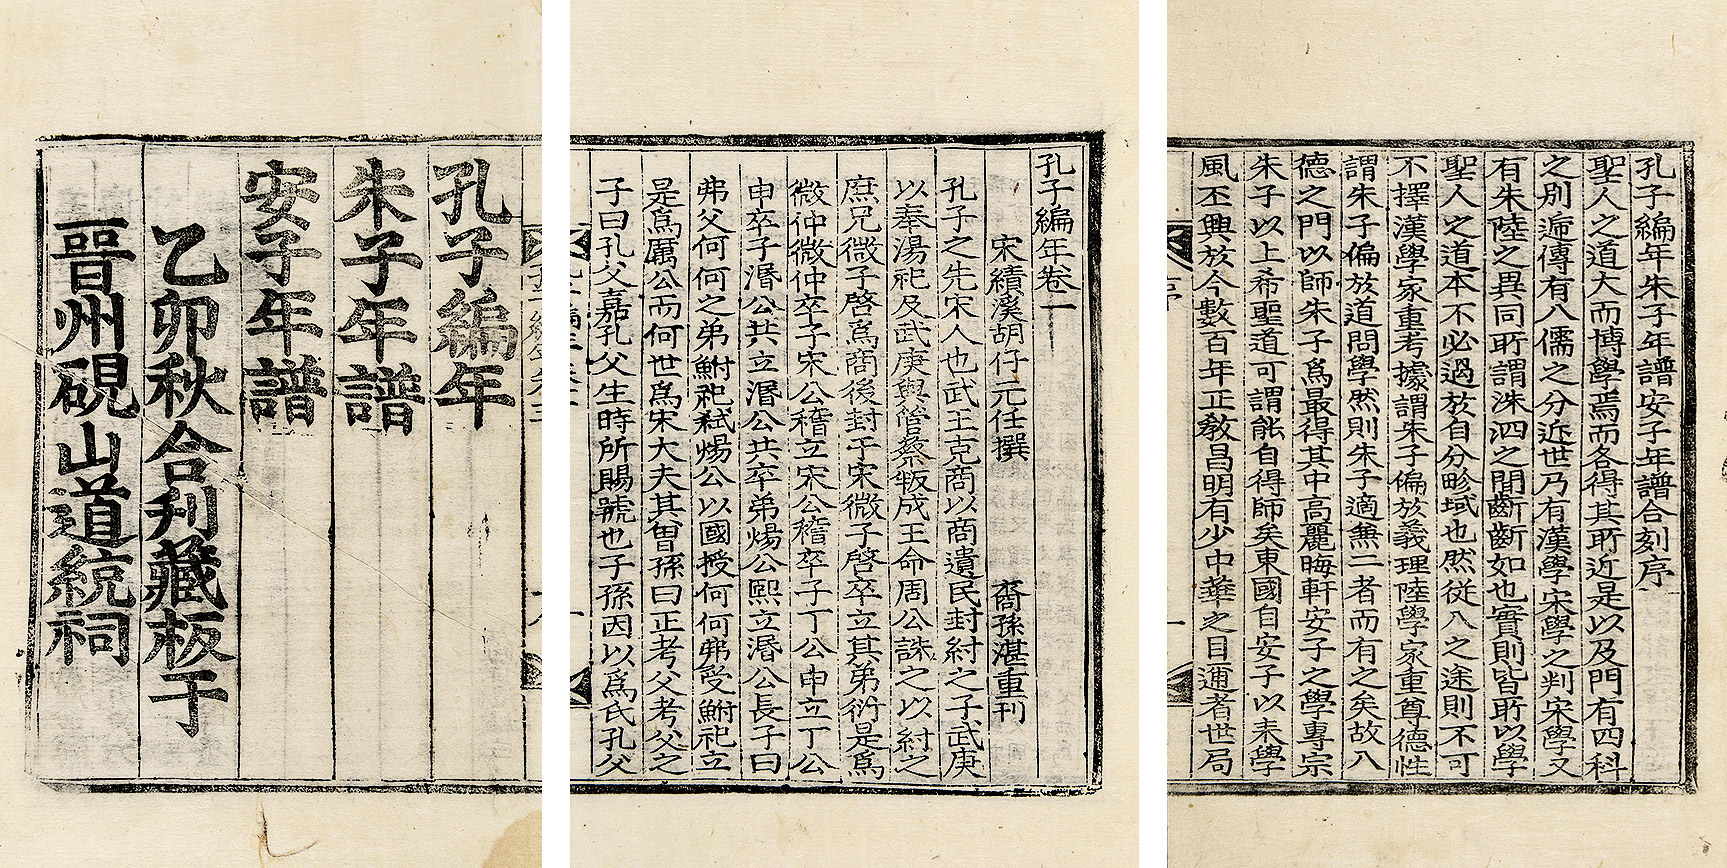 孔子編年朱子年譜安子年譜合刻序
聖人之道大而博學焉而各得其所近是以及門有四科
之別遞傳有八儒之分近世乃有漢學宋學之判宋學又
有朱陸之異同所謂洙泗之間齗齗如也實則皆所以學
聖人之道本不必過於自分畛域也然從入之途則不可
不擇漢學家重考據謂朱子偏於義理陸學家重尊德性
謂朱子偏於道問學然則朱子適兼二者而有之矣故入
德之門以師朱子爲最得其中高麗晦軒安子之學專宗
朱子以上希聖道可謂能自得師矣東國自安子以來學
風丕興於今數百年正敎昌明有少中華之目邇者世局
孔子編年卷一
宋績溪胡仔元任撰 裔孫湛重刊
孔子之先宋人也武王克商以商遺民封紂之子武庚
以奉湯祀及武庚與管蔡叛成王命周公誅之以紂之
庶兄微子啓爲商後封于宋微子啓卒立其弟衍是爲
微仲微仲卒子宋公稽立宋公稽卒子丁公申立丁公
申卒子湣公共立湣公共卒弟煬公熙立湣公長子曰
弗父何何之弟鮒祀弑煬公以國授何何弗受鮒祀立
是爲厲公而何世爲宋大夫其曾孫曰正考父考父之
子曰孔父嘉孔父生時所賜號也子孫因以爲氏孔父
孔子編年
朱子年譜
安子年譜
乙卯秋合刋藏板于
晉州硯山道統祠